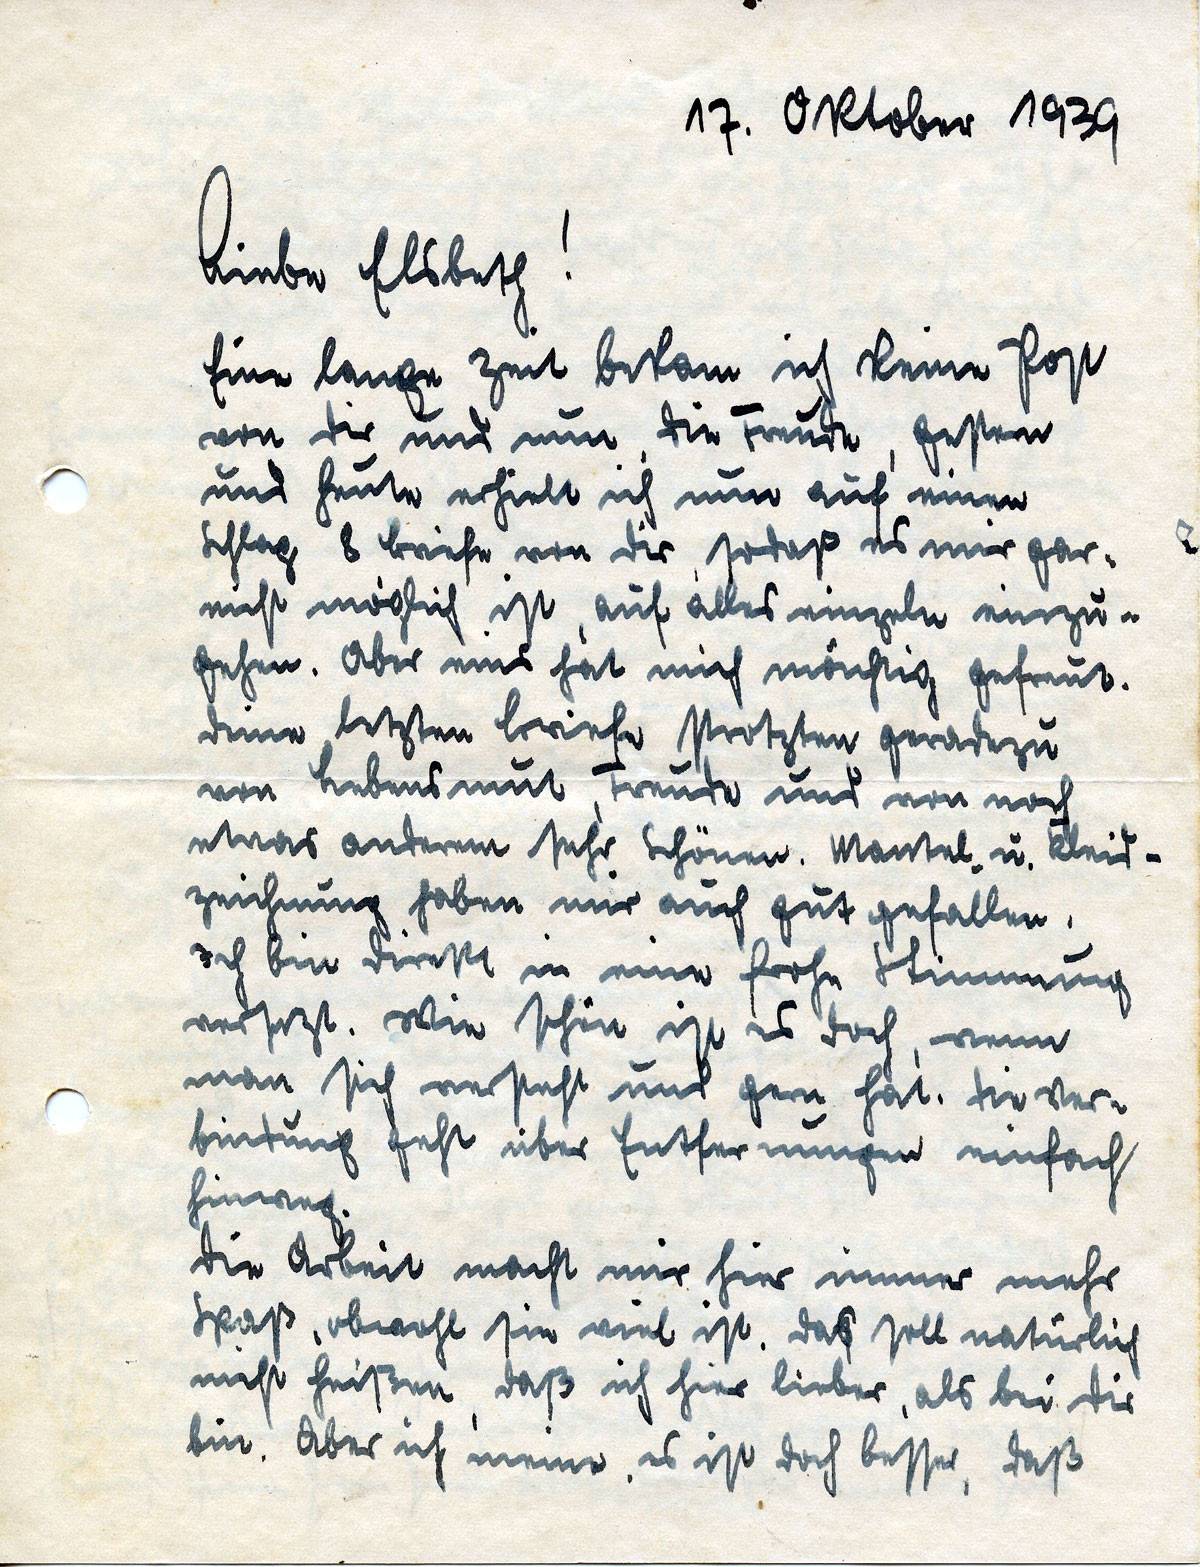 17. Oktober 1939
Liebe Elsbeth!
Eine lange Zeit bekam ich keine Post
von dir und nun, die Freude, gestern
und heute erhielt ich nun auf einen
Schlag 8 briefe von dir, sodaß es mir gar-
nicht möglich ist, auf alles einzeln einzu-
gehen. Aber eins hat mich mächtig gefreut.
deine letzten briefe strotzten geradezu
von Lebensmut, Freude und von noch
etwas anderem sehr Schönen. Mantel- u. Kleid-
zeichnung haben mir auch gut gefallen.
Ich bin direkt in eine frohe Stimmung
versezt. Wie schön ist es doch, wenn
man sich versteht und gern hat. die Ver-
bindung geht über Entfernungen einfach
hinweg.
die Arbeit macht mir hier immer mehr
Spaß, obwohl sie viel ist. das soll natürlich
nicht heißen, daß ich hier lieber, als bei dir
bin. Aber ich meine, es ist doch besser, daß